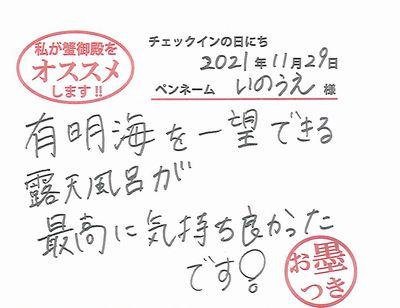 私が蟹御殿を
オススメ
します!!
チェックインの日にち
2021年11月29日
ペンネーム いのうえ 様
有明海を一望できる
露天風呂が
最高に気持ち良かった
です!
お墨
つき